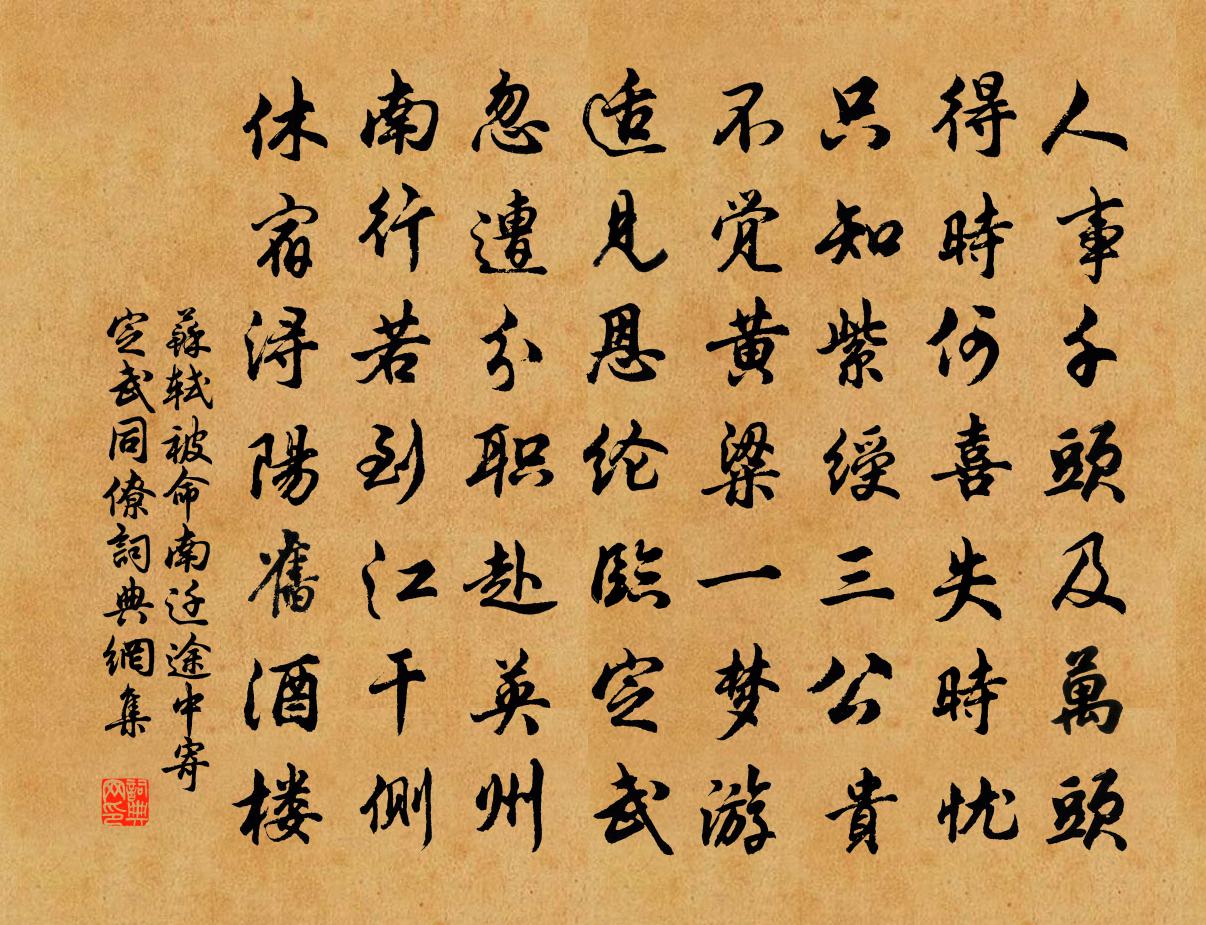 人事千頭及萬頭
得時何喜失時忧
只知紫綬三公貴
不觉黄粱一梦游
适見恩纶臨定武
忽遭分职赴英州
南行若到江干側
休宿浔陽舊酒楼
蘇轼被命南迁途中寄
定武同僚詞典網集
詞典网印